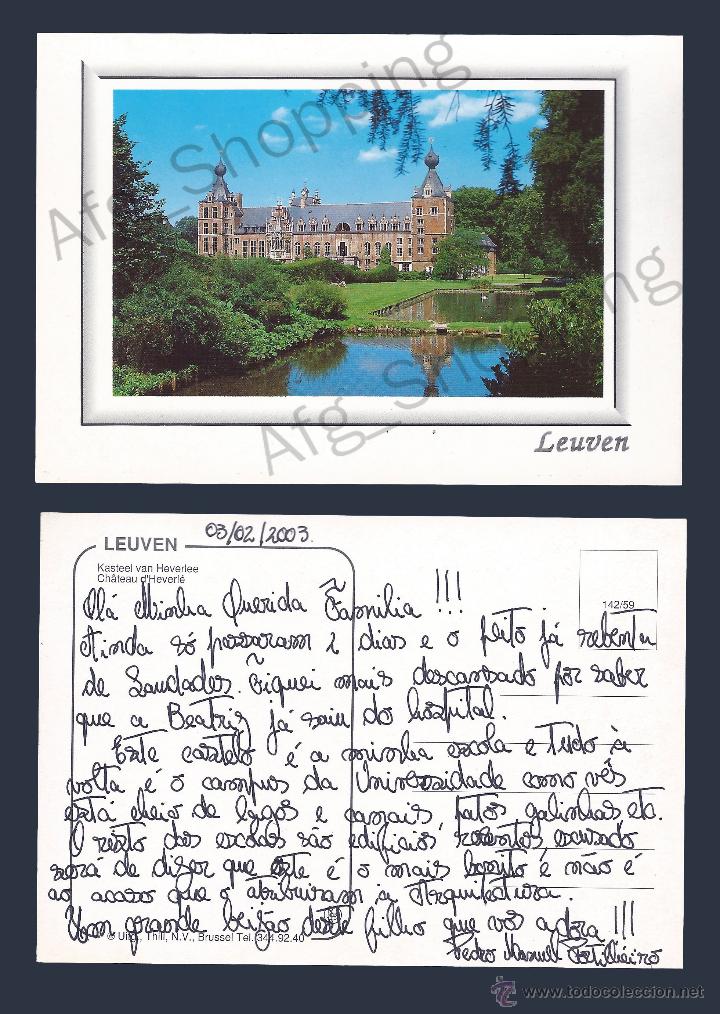 Afg_Shopping
Afg_Shopping
Afg_Shopping
Leuven
LEUVEN
03/02/2003.
Kasteel van Heverlee
Château d'Heverlé
142/59
Olá Minha Querida Familia !!!
Ainda só passaram 2 dias e o peito já rebenta
de Saudades. Fiquei mais descansado por saber
que a Beatriz já saiu do hospital.
Este castelo é a minha escola e Tudo à
volta é o campus da Universidade como vês
está cheio de lagos e canais, patos galinhas etc.
O resto das escolas são edificios recentes escusado
será de dizer que este é o mais bonito e não é
ao acaso que o atribuiram à Arquitectura.
Um grande beijão deste filho que vos adora !!!
© Uitg. Thill, N.V., Brussel Tel. 344.92.40
Pedro Manuel
www.todocoleccion.net